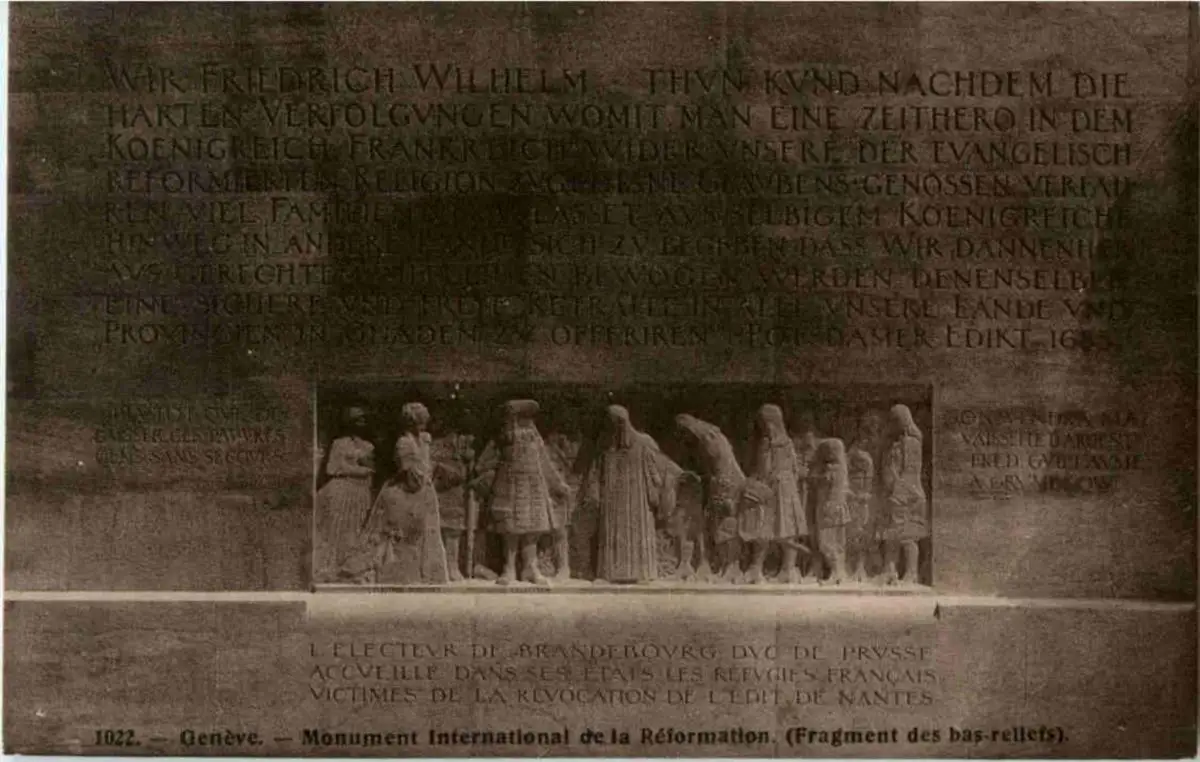 WIR FRIEDRICH WILHELM · THVN KVND NACHDEM DIE
HARTEN VERFOLGVNGEN WOMIT MAN EINE ZEITHERO IN DEM
KOENIGREICH FRANKREICH WIDER VNSERE DER EVANGELISCH
REFORMIERTEN RELIGION ZVGETHANE GLAVBENS-GENOSSEN VERFAH
REN VIEL FAMILIEN VERANLASSET AVS SELBIGEM KOENIGREICHE
HINWEG IN ANDERE LANDE SICH ZV BEGEBEN DASS WIR DANNENHER
AVS GERECHTEM BEWOGEN WERDEN DENENSELBEN
EINE SICHERE VND FREYE RETRAITE IN ALLE VNSERE LANDE VND
PROVINCIEN IN GNADEN ZV OFFERIREN POTSDAMER EDIKT 1685
PLVTOT QVE DE
LAISSER CES PAVVRES
GENS SANS SECOVRS
ON VENDRA MA
VAISSELLE D'ARGENT
FRED GVILLAVME
L'ELECTEVR DE BRANDEBOVRG DVC DE PRVSSE
ACCVEILLE DANS SES ETATS LES REFVGIES FRANÇAIS
VICTIMES DE LA REVOCATION DE L'EDIT DE NANTES
1022. — Genève. — Monument International de la Réformation. (Fragment des bas-reliefs).